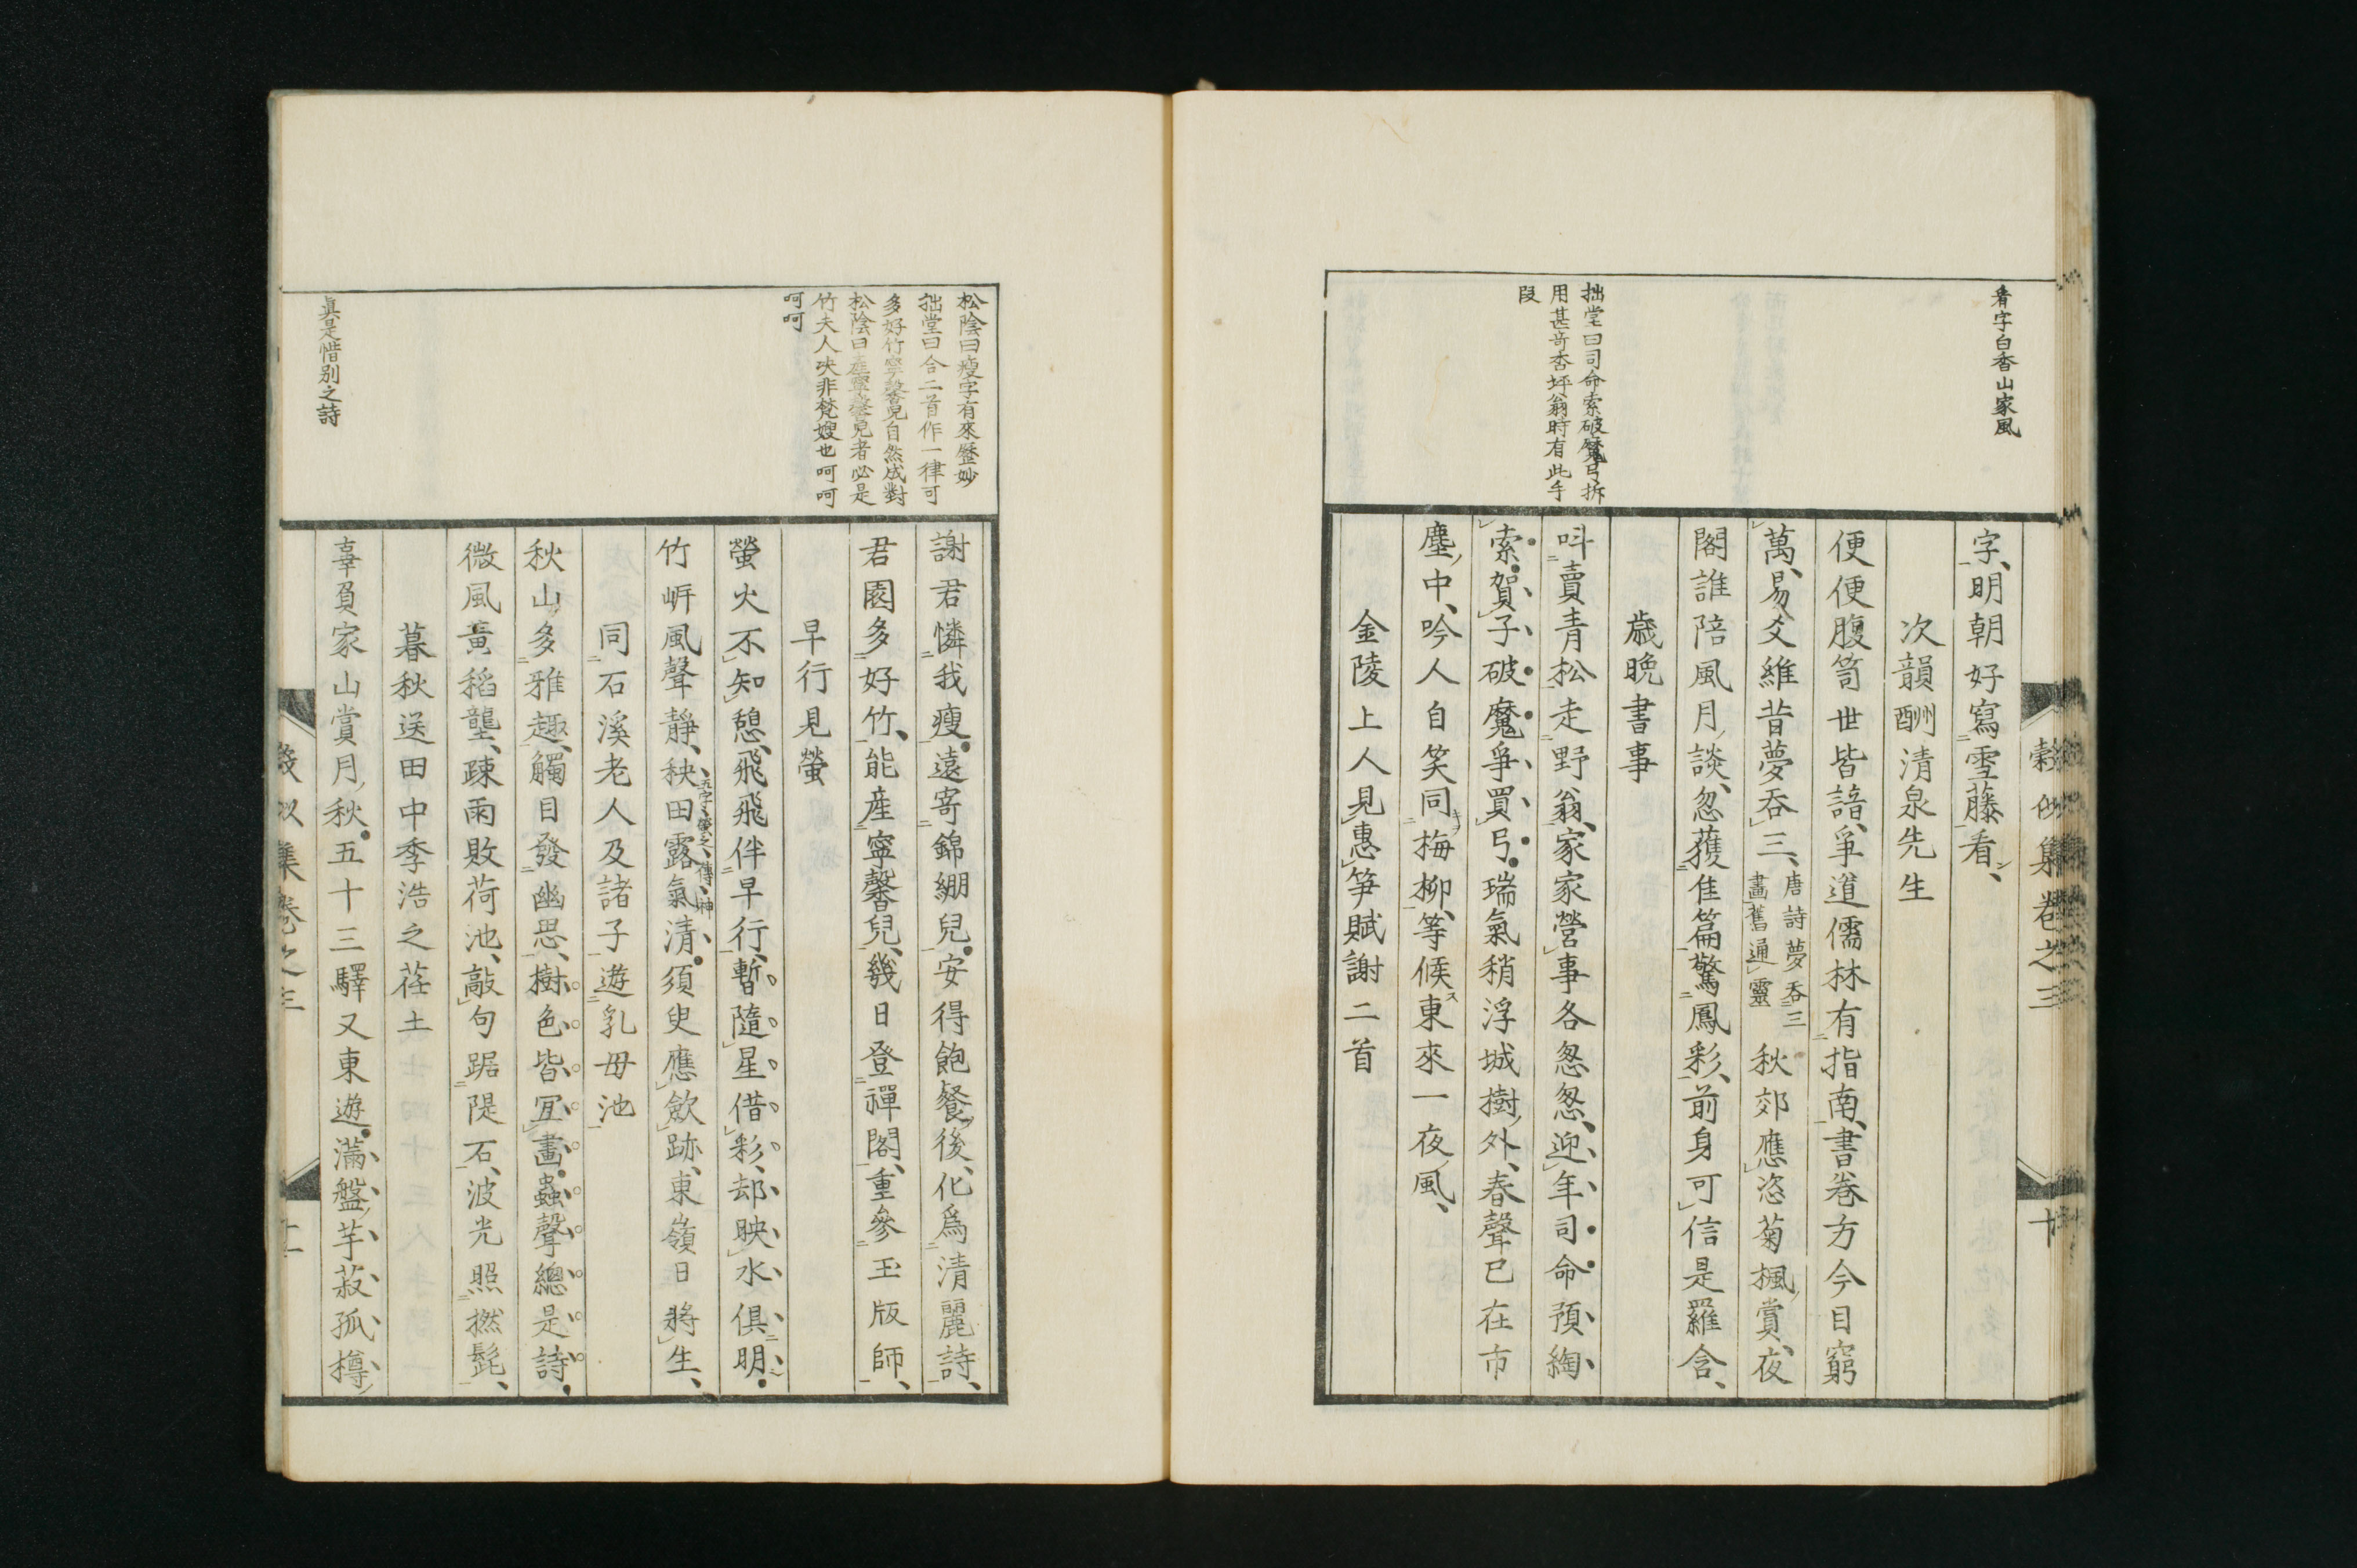 看字白香山家風
拙堂曰司命索破魔弓拆
用甚奇杏坪翁時有此手
段
字明朝好寫雪藤看
次韻酬清泉先生
便便腹笥世皆諳爭道儒林有指南書卷方今目窮
萬易爻維昔夢呑三唐詩夢呑三
畫舊通靈秋郊應恣菊楓賞夜
閣誰陪風月談忽獲佳篇驚鳳彩前身可信是羅含
歳晩書事
呌賣青松走野翁家家營事各怱怱迎年司命預綯
索賀子破魔爭買弓瑞氣稍浮城樹外春聲已在市
塵中吟人自笑同梅柳等候東來一夜風
金陵上人見惠笋賦謝二首
穀似集卷之三
十
松陰曰瘦字有來歷妙
拙堂曰合二首作一律可
多好竹寧馨兒自然成對
松陰曰産寧馨兒者必是
竹夫人決非梵嫂也呵呵
呵呵
眞是惜別之詩
謝君憐我瘦遠寄錦繃兒安得飽餐後化爲清麗詩
君園多好竹能産寧馨兒幾日登禪閣重參玉版師
早行見螢
螢火不知憩飛飛伴早行暫隨星借彩却映水俱明
五字螢之傳神
竹岍風聲靜秧田露氣清須臾應斂跡東嶺日將生
同石溪老人及諸子遊乳母池
秋山多雅趣觸目發幽思樹色皆宜畫蟲聲總是詩
微風黃稻壟疎雨敗荷池敲句踞隄石波光照撚髭
暮秋送田中季浩之荏土
辜負家山賞月秋五十三驛又東遊滿盤芋菽孤樽